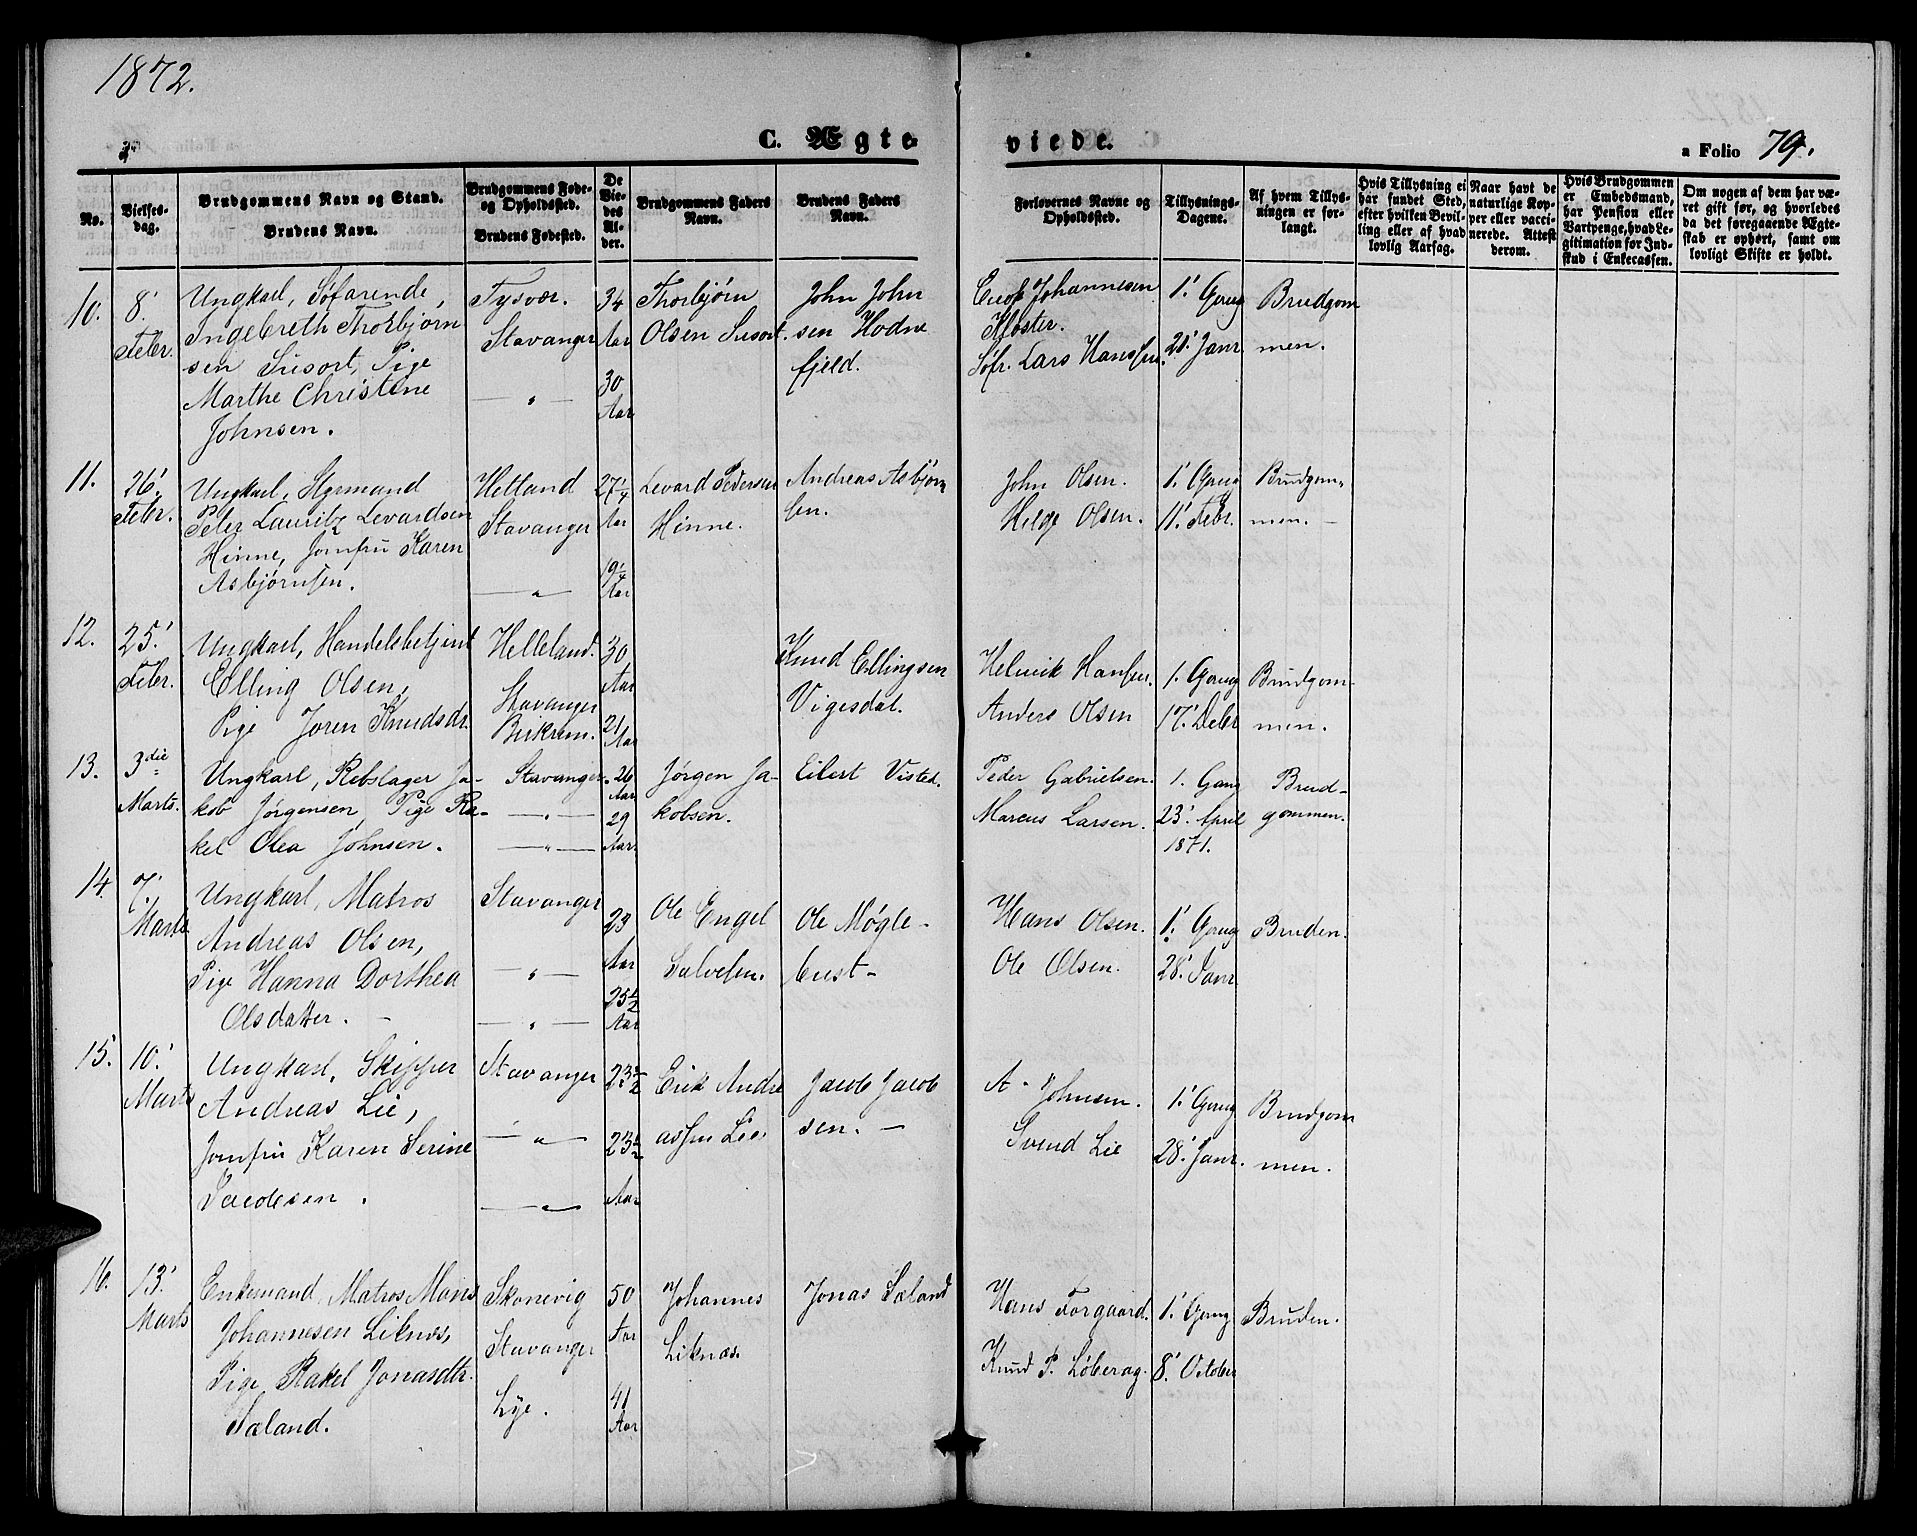 1872.
C. Ægteviede.
a Folio 79.
No.
Vielses-
dag.
Brudgommens Navn og Stand.
Brudens Navn.
Brudgommens Føde-
og Opholdssted.
Brudens Fødested.
De
Vie-
des
Al-
der.
Brudgommens Faders
Navn.
Brudens Faders
Navn.
Forlovernes Navne og
Opholdssted.
Tillysnings-
Dagene.
Af hvem Tillys-
ningen er for-
langt.
Hvis Tillysning ei
har fundet Sted,
efter hvilken Bevil-
ling eller af hvad
lovlig Aarsag.
Naar havt de
naturlige Kop-
per eller vacci-
nerede. Attest
derom.
Hvis Brudgommen
er Embedsmand,
har Pension eller
Vartpenge, hvad Le-
gitimation for Ind-
skud i Enkecassen.
Om nogen af dem har væ-
ret gift før, og hvorledes
da det foregaaende Ægte-
skab er ophørt, samt om
lovligt Skifte er holdt.
10.
8'
Febr.
Ungkarl, Søfarende,
Ingebreth Thorbjørn
sen Susort, Pige
Marthe Christine
Johnsen.
Tysvær.
Stavanger
— " —
34
Aar
30
Aar
Thorbjørn
Olsen Susort.
John John
sen Hodne
fjeld.
Johannesen
Kloster.
Søfr. Lars Hansen.
1' Gang
21' Janr.
Brudgom
men.
11.
26'
Febr.
Ungkarl, Styrmand
Peter Lauritz Levardsen
Hinne, Jomfru Karen
Asbjørnsen.
Hetland
Stavanger
— " —
27 1/4
Aar
19 1/4
Aar
Levard Pedersen
Hinne.
Andreas Asbjørn
sen.
John Olsen.
Helge Olsen.
1' Gang
11' Febr.
Brudgom-
men. —
12.
25'
Febr.
Ungkarl, Handelsbetjent
Elling Olsen,
Pige Joren Knudsdr.
Helleland.
Stavanger
Birkrem.
30
Aar
21
Aar
Knud Ellingsen
Vigesdal.
Helmik Hansen.
Anders Olsen
1. Gang
17' Debr
Brudgom-
men.
13.
3die
Marts.
Ungkarl, Rebslager Ja-
kob Jørgensen, Pige Ra-
kel Olea Johnsen.
Stavanger.
— " —
— " —
26
Aar
29
Aar.
Jørgen Ja-
kobsen.
Eilert Visted.
Peder Gabrielsen.
Marcus Larsen.
1. Gang
23' April
1871.
Brud-
gommen.
14.
7'
Marts
Ungkarl, Matros
Andreas Olsen,
Pige Hanna Dorthea
Olsdatter. —
Stavanger
— " —
— " —
23
Aar
25 1/2
Aar
Ole Engel
Salvesen.
Ole Møgle-
bust —
Hans Olsen.
Ole Olsen.
1' Gang
28' Janr
Bruden.
15.
10'
Marts
Ungkarl, Skipper
Andreas Lie,
Jomfru Karen Serine
Jacobsen.
Stavanger
— " —
— " —
23 1/2
23 1/2
Aar
Erik Andre
assen Lie.
Jacob Jacob
sen. —
A. Johnsen.
Svend Lie
1' Gang
28' Janr.
Brudgom
men.
16.
13'
Marts
Enkemand, Matros Mons
Johannesen Liknæs,
Pige Rakel Jonasdtr.
Sæland.
Skonevig
Stavanger
Lye.
50
Aar
41
Aar
Johannes
Liknæs.
Jonas Sæland
Hans Torgaard.
Knud P. Løberag.
1' Gang
8' October
Bruden.